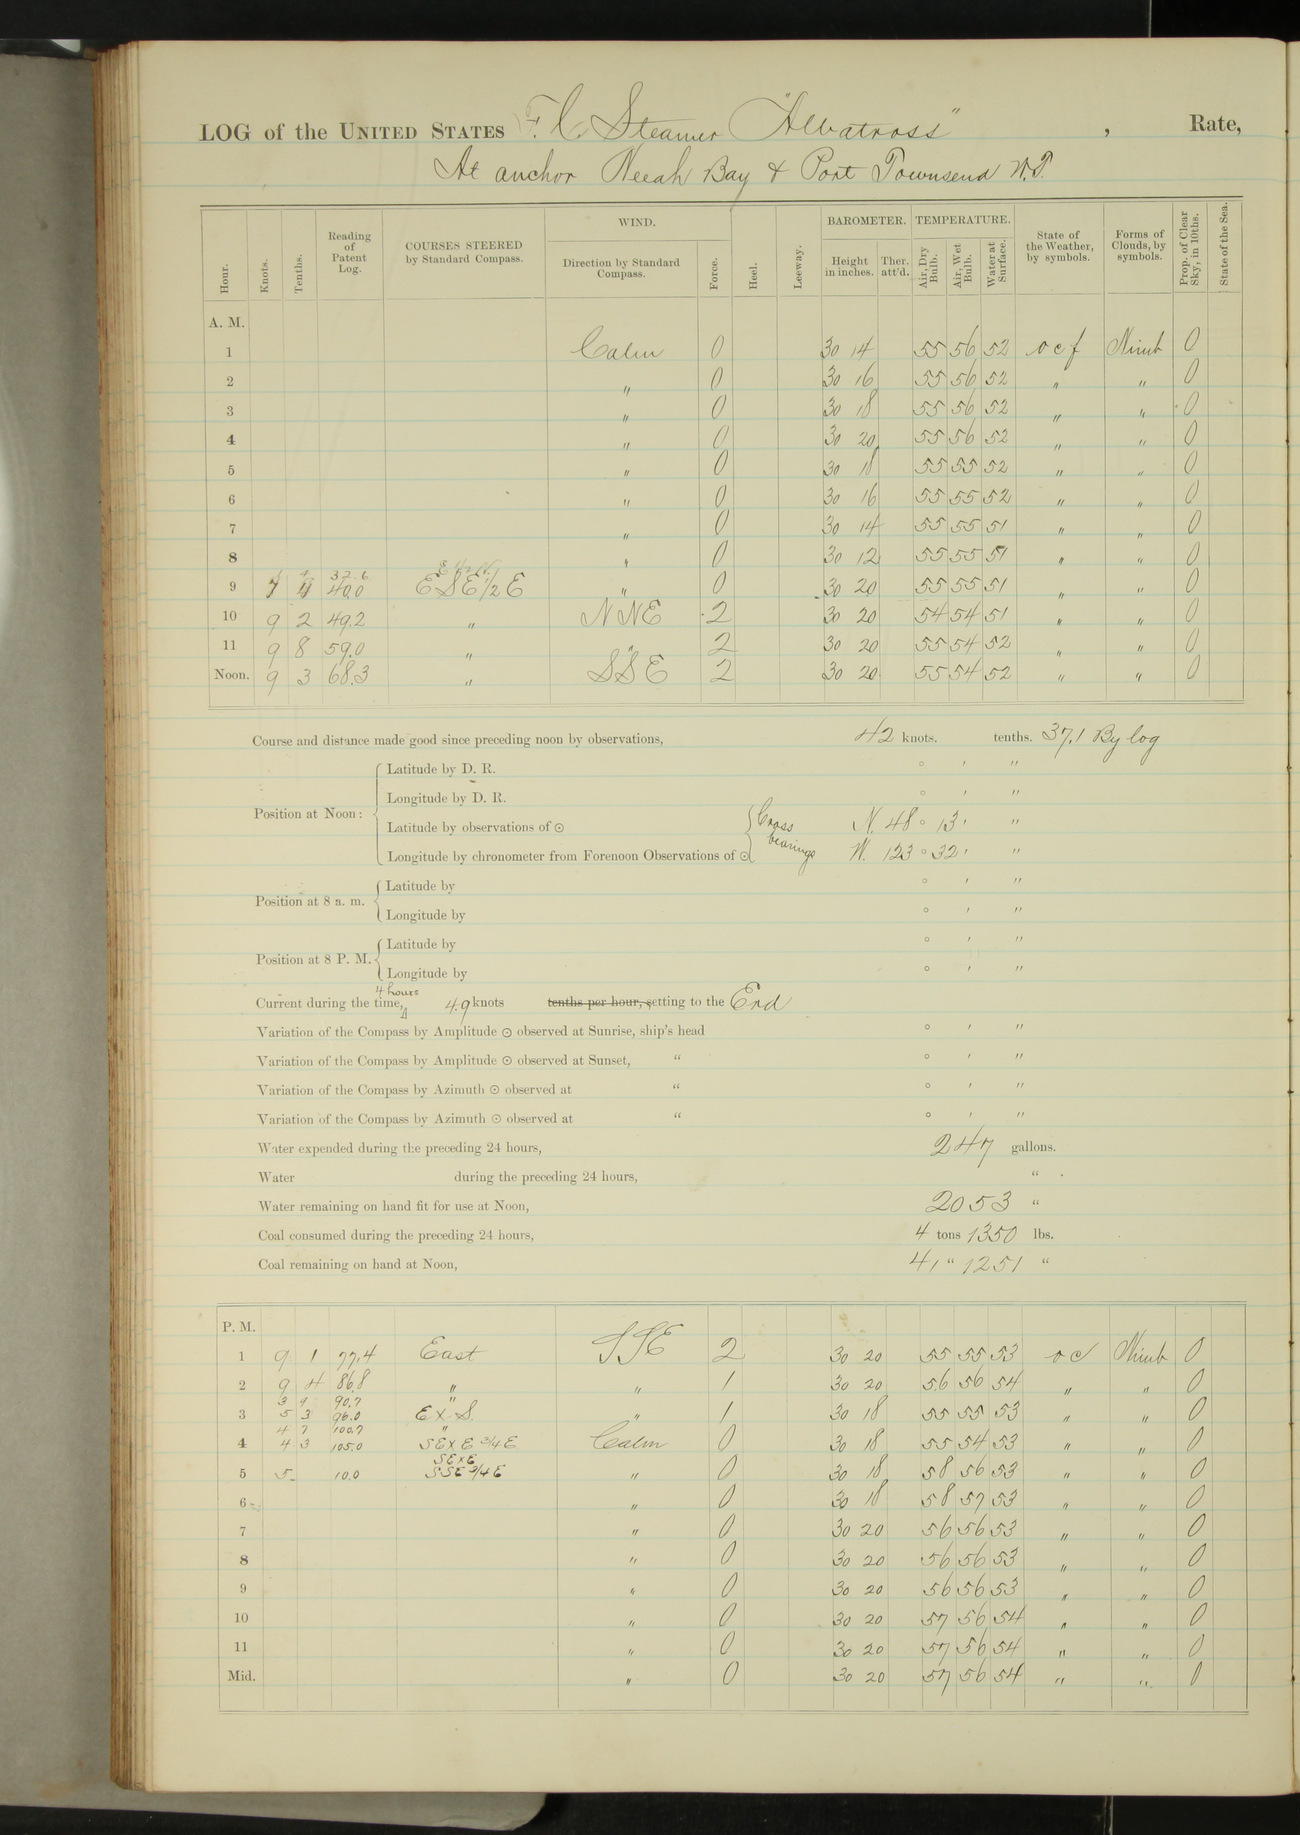 LOG of the UNITED STATES F. C. Steamer "Albatross", Rate,
At anchor Neeah Bay & Port Townsend W.T.
Hour. Knots. Tenths. Reading of Patent Log. COURSES STEERED by Standard Compass. WIND. Direction by Standard Compass. Force. Heel. Leeway. BAROMETER. Height in inches. Ther. att'd. TEMPERATURE. Air, Dry Bulb. Air, Wet Bulb. Water at Surface. State of the Weather, by symbols. Forms of Clouds, by symbols. Prop. of Clear Sky, in 10ths. State of the Sea.
A. M.
1 Calm 0 30 14 55 56 52 o c f Nimb 0
2 " 0 30 16 55 56 52 " " 0
3 " 0 30 18 55 56 52 " " 0
4 " 0 30 20 55 56 52 " " 0
5 " 0 30 18 55 55 52 " " 0
6 " 0 30 16 55 55 52 " " 0
7 " 0 30 14 55 55 51 " " 0
8 " 0 30 12 55 55 51 " " 0
32.6 E 1/2 N
9 7 4 40.0 ESE 1/2 E " 0 30 20 55 55 51 " " 0
10 9 2 49.2 " NNE 2 30 20 54 54 51 " " 0
11 9 8 59.0 " " 2 30 20 55 54 52 " " 0
Noon. 9 3 68.3 " SSE 2 30 20 55 54 52 " " 0
Course and distance made good since preceding noon by observations, 42 knots. tenths. 37.1 By log
Latitude by D. R. ° ′ ″
Longitude by D. R. ° ′ ″
Position at Noon:
Latitude by observations of ⊙ Cross N. 48° 13′ ″
Longitude by chronometer from Forenoon Observations of ⊙ bearings W. 123° 32′ ″
Latitude by ° ′ ″
Position at 8 a. m.
Longitude by ° ′ ″
Latitude by ° ′ ″
Position at 8 P. M.
Longitude by ° ′ ″
4 hours
Current during the time, 4.9 knots tenths per hour, setting to the End
Variation of the Compass by Amplitude ⊙ observed at Sunrise, ship's head ° ′ ″
Variation of the Compass by Amplitude ⊙ observed at Sunset, " ° ′ ″
Variation of the Compass by Azimuth ⊙ observed at " ° ′ ″
Variation of the Compass by Azimuth ⊙ observed at " ° ′ ″
Water expended during the preceding 24 hours, 247 gallons.
Water during the preceding 24 hours, "
Water remaining on hand fit for use at Noon, 2053 "
Coal consumed during the preceding 24 hours, 4 tons 1350 lbs.
Coal remaining on hand at Noon, 41 " 1251 "
P. M.
1 9 1 77.4 East SSE 2 30 20 55 55 53 o c Nimb 0
2 9 4 86.8 " " 1 30 20 56 56 54 " " 0
3 9 90.7 "
3 5 3 96.0 E x S. " 1 30 18 55 55 53 " " 0
4 7 100.7 "
4 4 3 105.0 SE x E 3/4 E Calm 0 30 18 55 54 53 " " 0
SE x E
5 5 10.0 SSE 3/4 E " 0 30 18 58 56 53 " " 0
6 " 0 30 18 58 57 53 " " 0
7 " 0 30 20 56 56 53 " " 0
8 " 0 30 20 56 56 53 " " 0
9 " 0 30 20 56 56 53 " " 0
10 " 0 30 20 57 56 54 " " 0
11 " 0 30 20 57 56 54 " " 0
Mid. " 0 30 20 57 56 54 " " 0